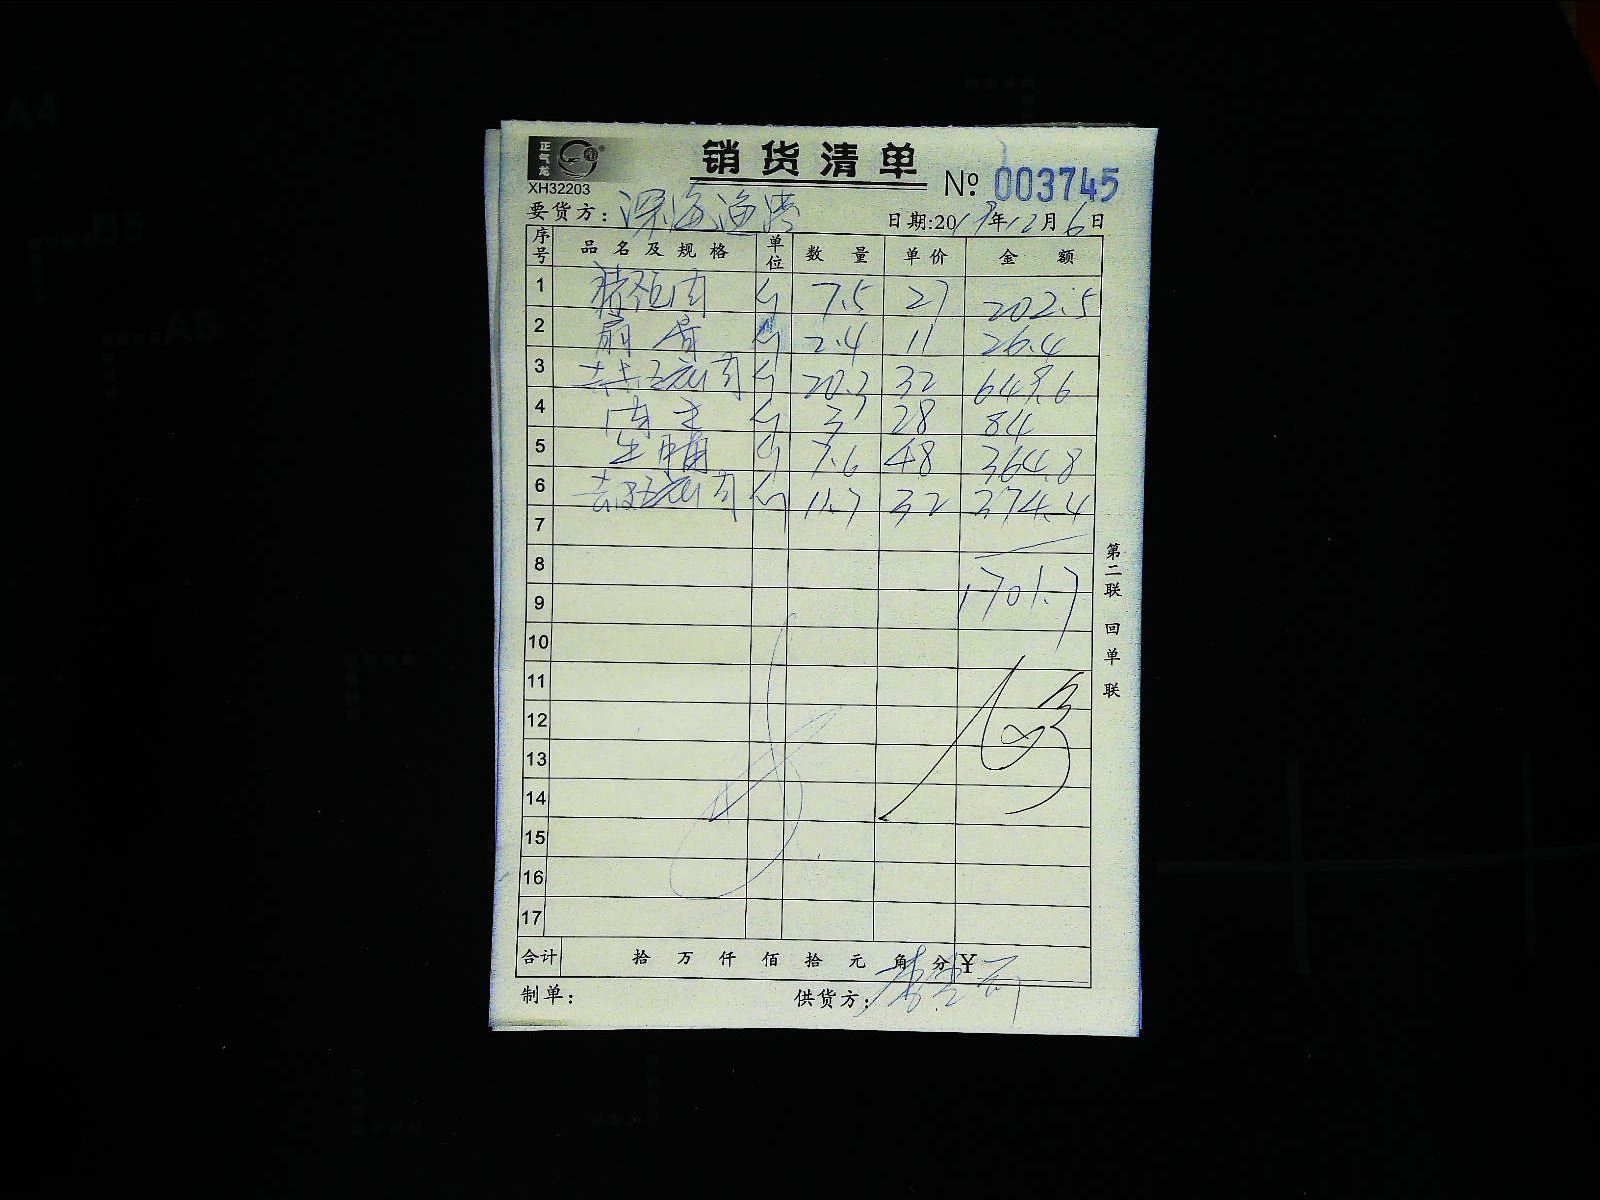 正气龙
销货清单
XH32203
№ 003745
要货方：深海渔湾
日期:2017年12月6日
序号 品名及规格 单位 数量 单价 金额
1 猪颈肉 斤 7.5 27 202.5
2 扇骨 斤 2.4 11 26.4
3 去皮五花肉 斤 20.3 32 649.6
4 肉 斤 3 28 84
5 牛腩 斤 7.6 48 364.8
6 去皮五花肉 斤 11.7 32 374.4
7
8
9 1701.7
10
11
12
13
14
15
16
17
合计 拾万仟佰拾元角分 ¥
制单： 供货方：李
第二联 回单联